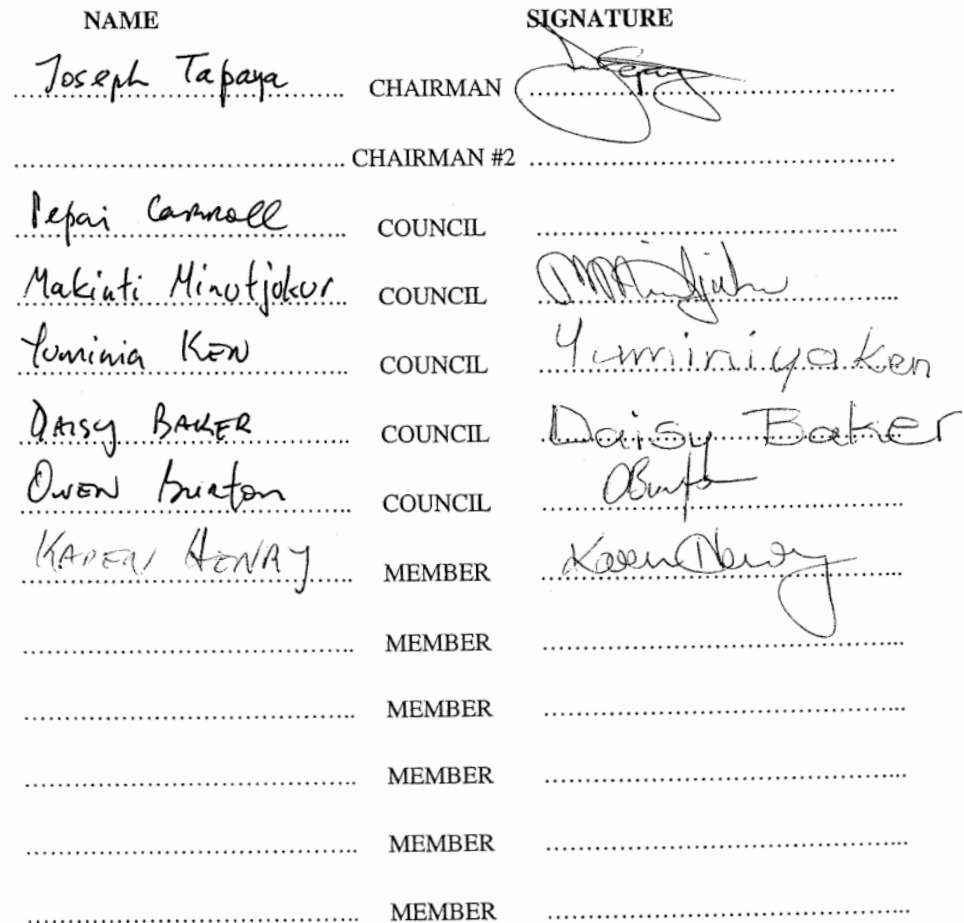 NAME SIGNATURE
Joseph Tapaya CHAIRMAN
CHAIRMAN #2
Pepai Carroll COUNCIL
Makinti Minutjukur COUNCIL
Yuminia KEN COUNCIL Yuminiya Ken
DAISY BAKER COUNCIL Daisy Baker
OWEN Burton COUNCIL OBurton
KAREN HENRY MEMBER Karen Henry
MEMBER
MEMBER
MEMBER
MEMBER
MEMBER